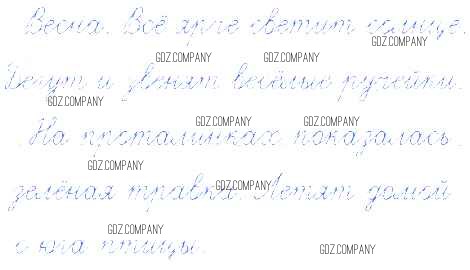 Весна. Всё ярче светит солнце.
GDZ.COMPANY
GDZ.COMPANY GDZ.COMPANY
Бегут и звенят весёлые ручейки.
GDZ.COMPANY
GDZ.COMPANY GDZ.COMPANY
На проталинках показалась
GDZ.COMPANY
зелёная травка. Летят домой
GDZ.COMPANY
GDZ.COMPANY
с юга птицы.
GDZ.COMPANY